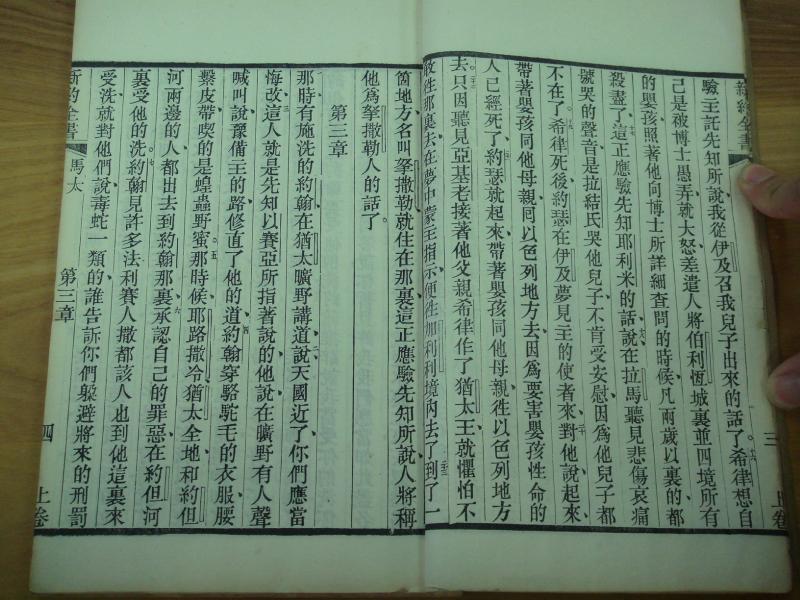 新約全書
三
上卷
驗主託先知所說我從伊及召我兒子出來的話了希律想自
己是被博士愚弄就大怒差遣人將伯利恆城裏並四境所有
的嬰孩照著他向博士所詳細查問的時候凡兩歲以裏的都
殺盡了這正應驗先知耶利米的話說在拉馬聽見悲傷哀痛
號哭的聲音是拉結氏哭他兒子不肯受安慰因爲他兒子都
不在了希律死後約瑟在伊及夢見主的使者來對他說起來
帶著嬰孩同他母親囘以色列地方去因爲要害嬰孩性命的
人已經死了約瑟就起來帶著嬰孩同他母親徃以色列地方
去只因聽見亞基老接著他父親希律作了猶太王就懼怕不
敢徃那裏去在夢中蒙主指示便徃加利利境內去了到了一
箇地方名叫拏撒勒就住在那裏這正應驗先知所說人將稱
他爲拏撒勒人的話了
第三章
那時有施洗的約翰在猶太曠野講道說天國近了你們應當
悔改這人就是先知以賽亞所指著說的他說在曠野有人聲
喊叫說豫備主的路修直了他的道約翰穿駱駝毛的衣服腰
繫皮帶喫的是蝗蟲野蜜那時候耶路撒冷猶太全地和約但
河兩邊的人都出去到約翰那裏承認自己的罪惡在約但河
裏受他的洗約翰見許多法利賽人撒都該人也到他這裏來
受洗就對他們說毒蛇一類的誰告訴你們躱避將來的刑罰
新約全書
馬太
第三章
四
上卷